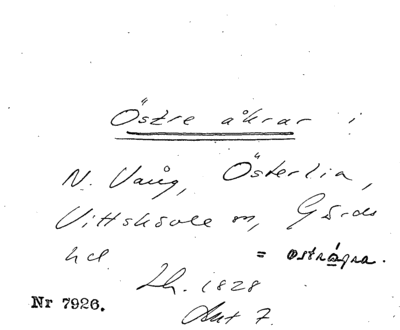 Östre åkrar i
N. Vång, Österlia,
Vittskövle sn, Gärds
hd = ostrågra.
Lh. 1828
Akt 7.
Nr 7926.